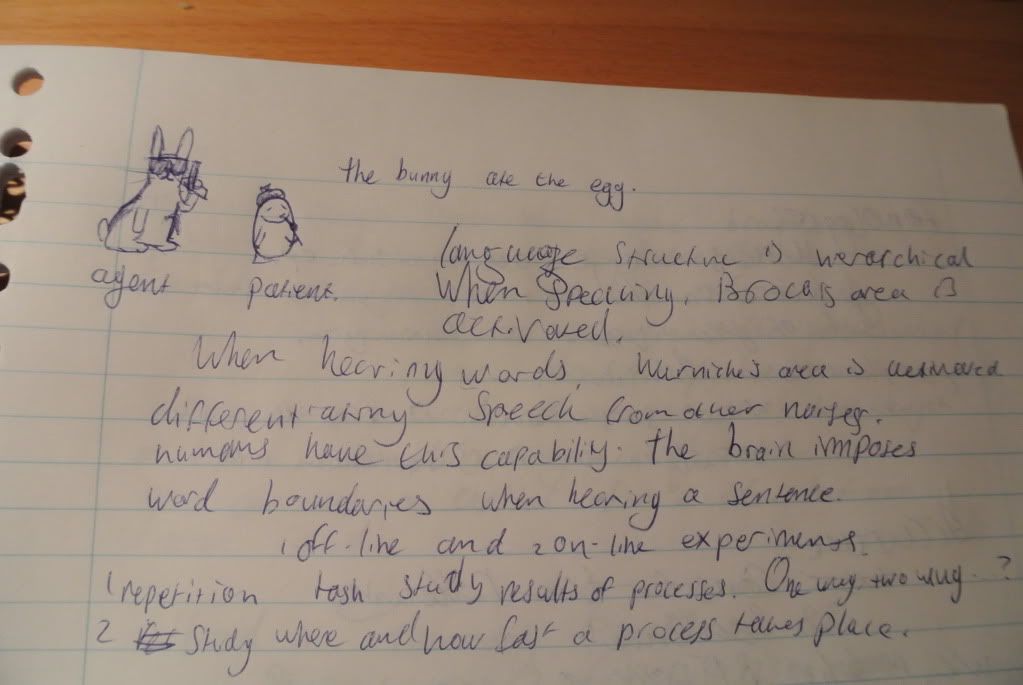 the bunny ate the egg.
agent patient.
language structure is hierarchical
When speaking, Broca's area is
activated.
When hearing words, Wernicke's area is activated
differentiating speech from other noises.
humans have this capability. the brain imposes
word boundaries when hearing a sentence.
1 off-line and 2 on-line experiments.
1 repetition task study results of processes. One way two way ?
2 Study where and how fast a process takes place.